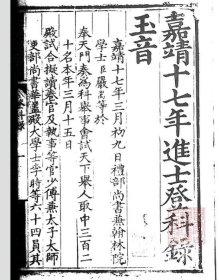 嘉靖十七年進士登科錄
玉音
嘉靖十七年三月初九日禮部尚書兼翰林院
學士臣嚴嵩等於
奉天門奏為科舉事會試天下舉人取中三百二
十名本年三月十五日
殿試合擬讀卷官及執事等官少傅兼太子太師
吏部尚書 蓋殿大學士李時等六十四員其